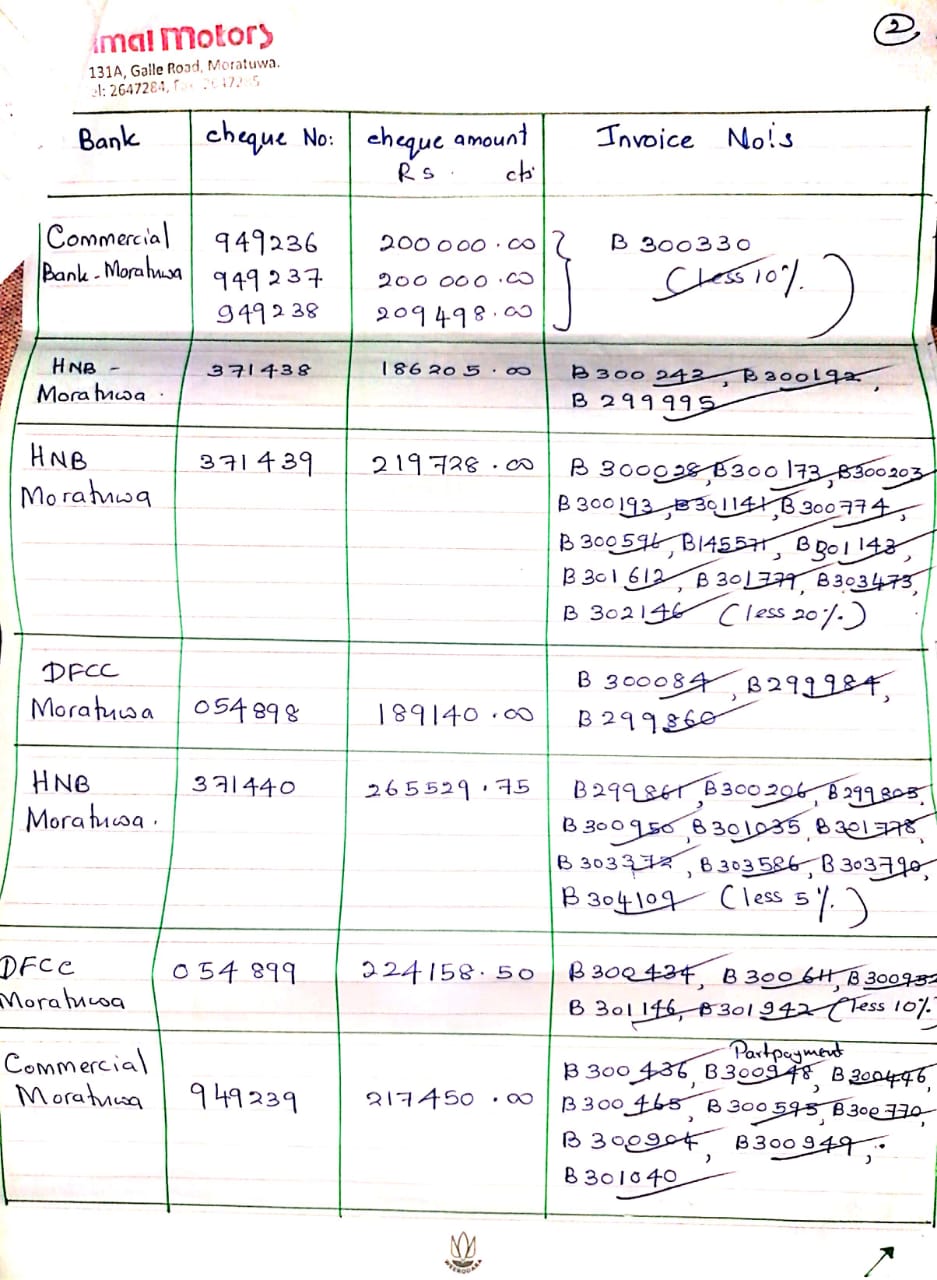 2
imal Motors
131A, Galle Road, Moratuwa.
el: 2647284,
Bank cheque No: cheque amount Invoice No's
Rs. cts
Commercial 949236 200000.00 B 300330
Bank - Moratuwa 949237 200000.00 (Less 10%)
949238 209498.00
HNB - 371438 186205.00 B300242, B300192,
Moratuwa. B 299995
HNB 371439 219728.00 B 300028, B300173, B300203
Moratuwa B300193, B301141, B300774,
B300596, B145571, B301143,
B301612, B301779, B303473,
B 302146 (less 20%.)
DFCC B 300084, B299984,
Moratuwa 054898 189140.00 B299860
HNB 371440 265529.75 B299861, B300206, B299805,
Moratuwa. B300950, B301035, B301778,
B303372, B303586, B303790,
B304109 (less 5%.)
DFCC 054899 224158.50 B300434, B300611, B300952
Moratuwa B301146, B301942 (less 10%.
Partpayment
Commercial B300436, B300948, B300446,
Moratuwa 949239 217450.00 B300465, B300595, B300770,
B300904, B300949,
B301040
WEERODARA